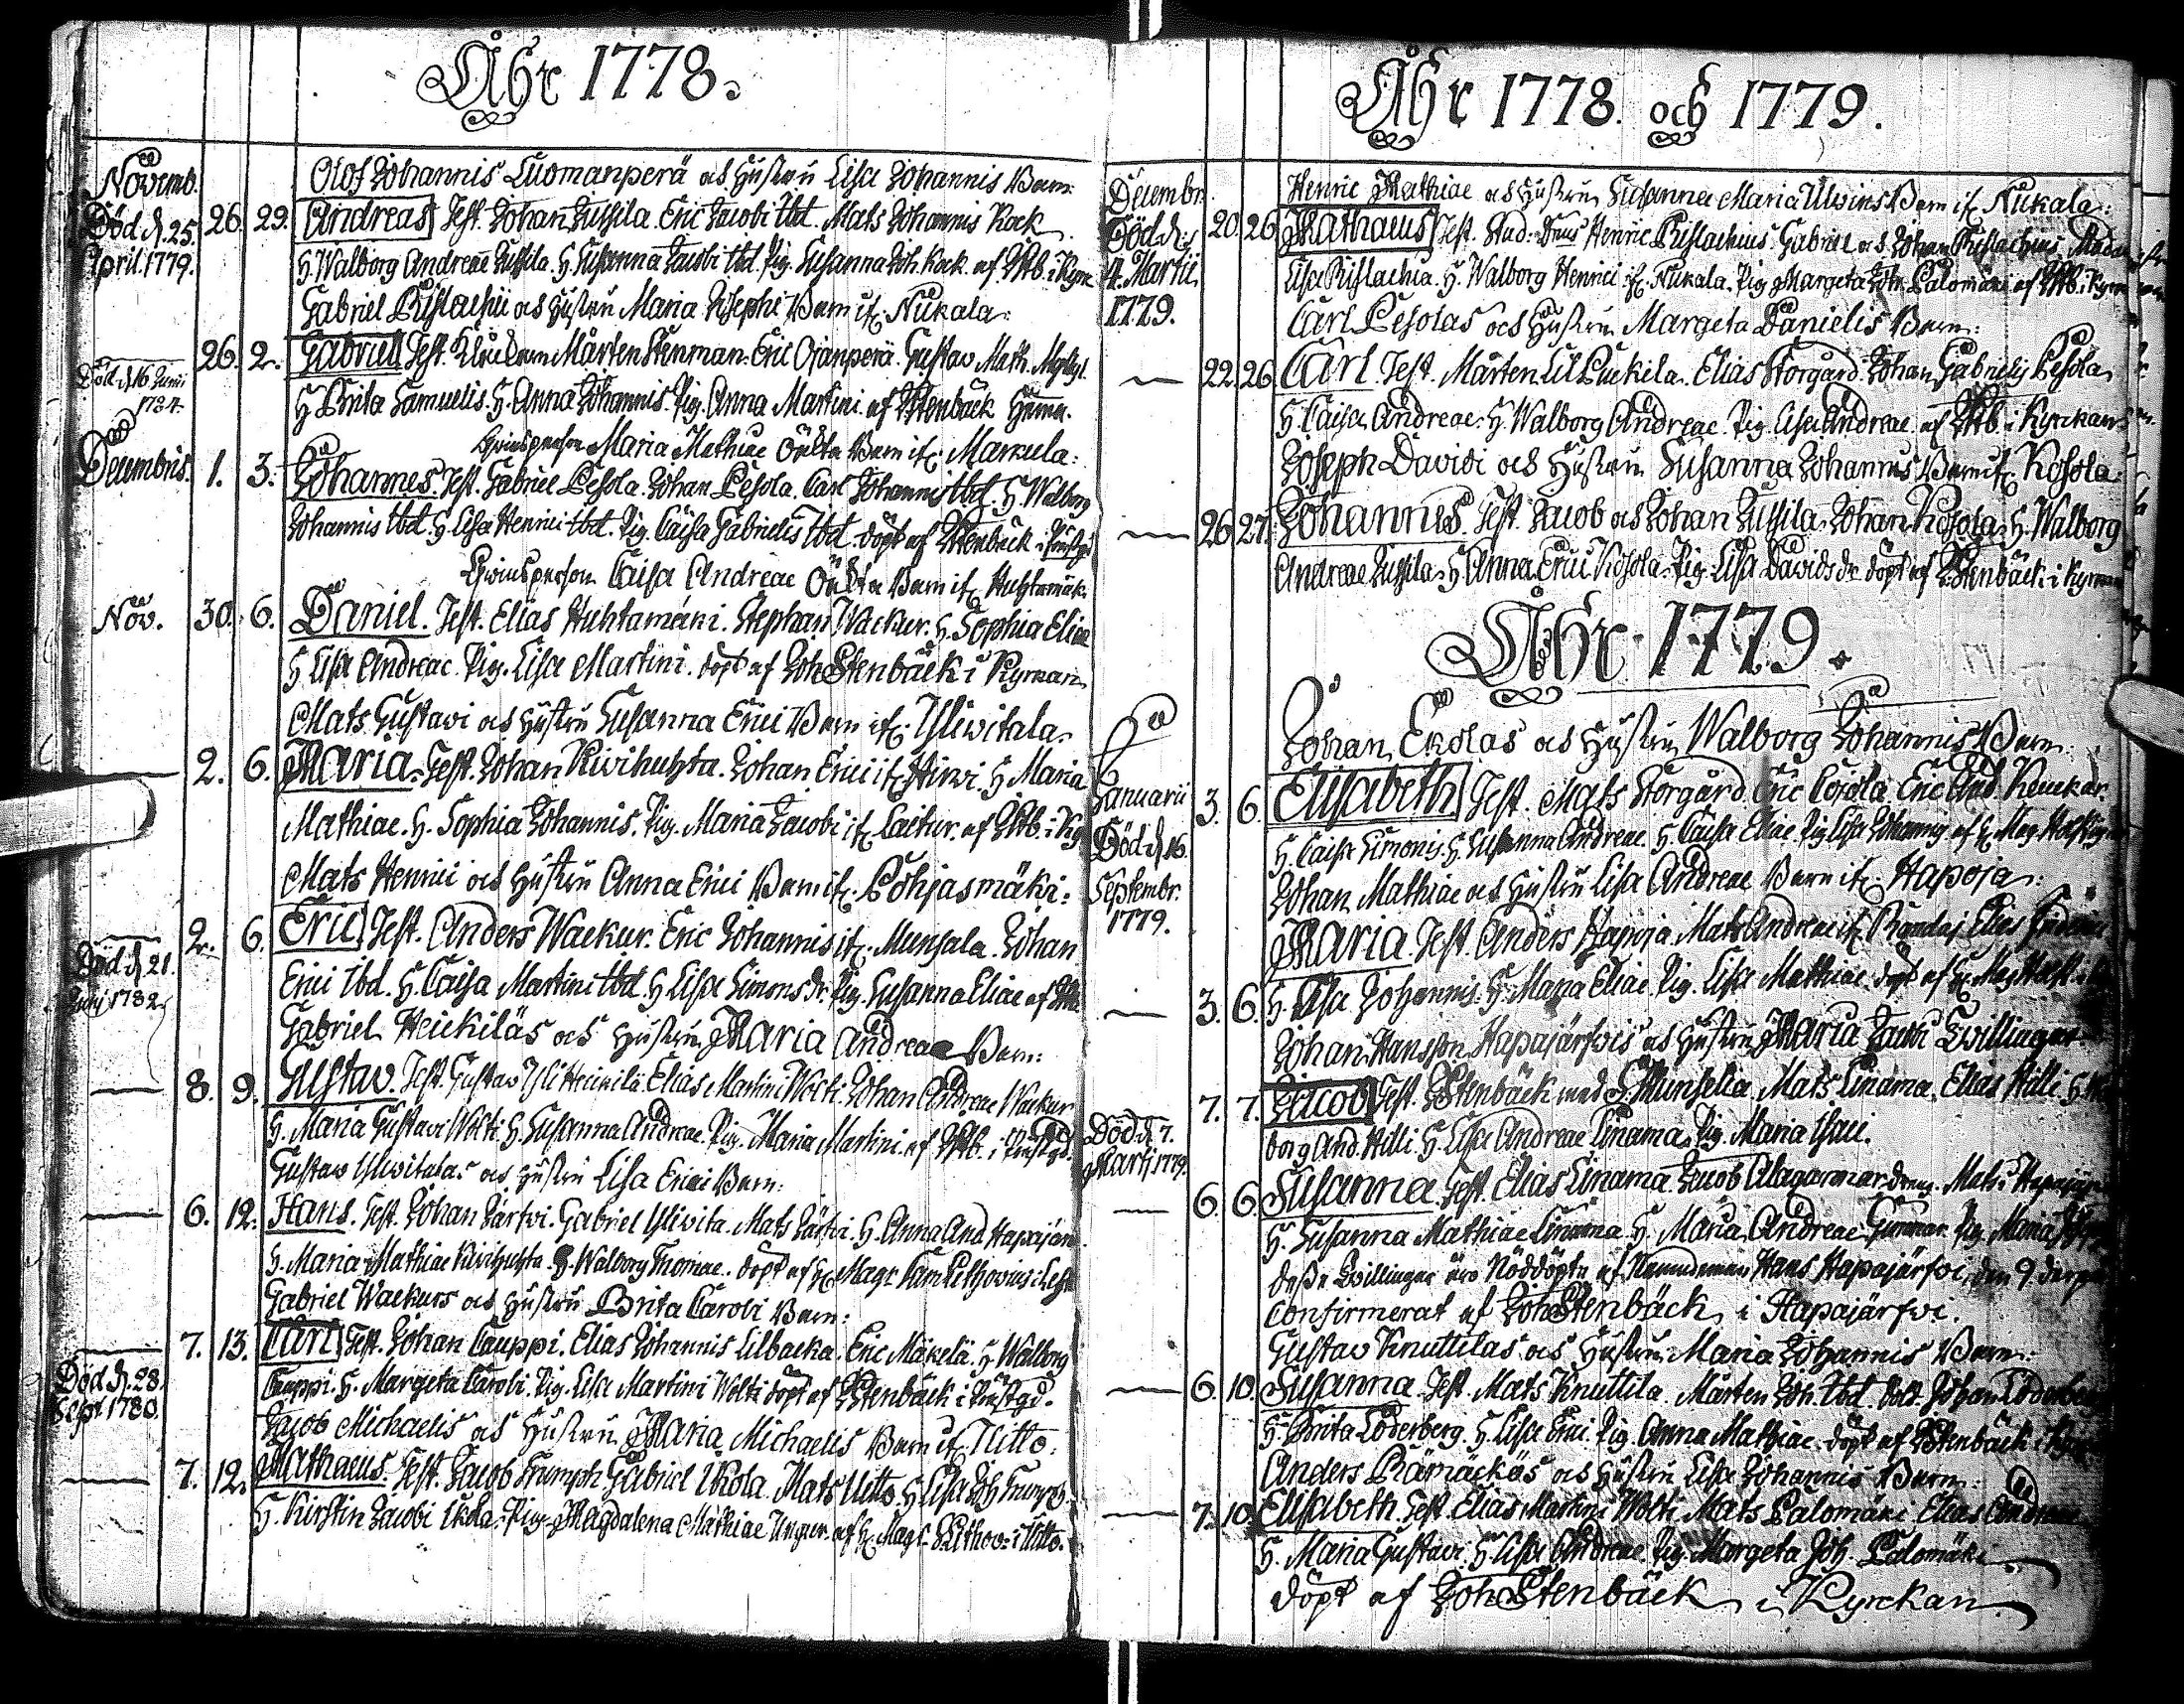 Åhr 1778.
Novemb.
Olof Johannis Luomanperä och Hustru Lisa Johannis Barn:
Död d. 25. April. 1779.
26. 29. Andreas Test. Johan Jussila. Eric Jacobi Ibd. Mats Johannis Kock
H. Walborg Andreae Jussila. H. Susanna Jacobi Ibd. Pig. Susanna Joh. Kock. af JStb. i Kyrk
Gabriel Rislachii och Hustru Maria Josephi Barn if. Nukala:
Död d. 16 Junii 1784.
26. 2. Gabriel Test. Klockaren Mårten Stenman. Eric Ojanperä. Gustav Math.
H. Brita Samuelis. H. Anna Johannis. Pig. Anna Martini. af JStenbäck hema.
Qvinsperson Maria Mathiae Oäkta Barn if. Markula:
Decembris. 1. 3. Johannes. Test. Gabriel Pesola. Johan Pesola. Carl Johannis Ibd. H. Walborg
Johannis Ibd. H. Lisa Henrici Ibd. Pig. Caisa Gabrielis Ibd. döpt af JStenbäck i Prästgd
Qvinsperson Caisa Andreae Oäkta Barn if. Huhtamäk.
Nov. 30. 6. Daniel. Test. Elias Huhtamäki. Stephan Wackur. H. Sophia Eliae
H. Lisa Andreae. Pig. Lisa Martini. döpt af Joh Stenbäck i Kyrkan
Mats Gustavi och Hustru Susanna Erici Barn if. Yliwitala.
2. 6. Maria. Test. Johan Kivihuhta. Johan Erici if. Hirvi. H. Maria
Mathiae. H. Sophia Johannis. Pig. Maria Jacobi if. Caitur. af JStb. i Ky
Mats Henrici och Hustru Anna Erici Barn if. Pohjasmäki:
Död d. 21. Junj 1782.
2. 6. Eric Test. Anders Wackur. Eric Johannis if. Munsala. Johan
Erici Ibd. H. Caisa Martini Ibd. H. Lisa Simons dr. Pig. Susanna Eliae af JStb.
Gabriel Heickiläs och Hustru Maria Andreae Barn:
8. 9. Gustav. Test. Gustav Yli Heickilä. Elias Martini Wolti. Johan Andreae Wackur
H. Maria Gustavi Wolti. H. Susanna Andreae. Pig. Maria Martini. af JStb. i Prästgd.
Gustav Yliwitalas och Hustru Lisa Erici Barn:
6. 12. Hans. Test. Johan Järfvi. Gabriel Yliwita. Mats Järfvi. H. Anna And. Hapajärv
H. Maria Mathiae Kivihuhta. H. Walborg Thomae. döpt af H. Mag:r Sam Lithovius
Gabriel Wackurs och Hustru Brita Caroli Barn:
Död d. 28. Sept. 1780.
7. 13. Carl Test. Johan Cauppi. Elias Johannis Lilbacka. Eric Mäkelä. H. Walborg
Cauppi. H. Margeta Caroli. Pig. Lisa Martini Wolti döpt af JStenbäck i Prästgd.
Jacob Michaelis och Hustru Maria Michaelis Barn if. Uitto:
7. 12. Mathaeus. Test. Jacob Trumph. Gabriel Ikola. Mats Uitto. H. Lisa Joh. Trumph.
H. Kirstin Jacobi Ikola. Pig. Magdalena Mathiae Ungur. af H. Mag:r Lithov: i Uitto.
Åhr 1778. och 1779.
Decembr.
Henric Mathiae och Hustru Susanna Maria Ulvins Barn if. Nukala:
Död d. 4. Martii 1779.
20. 26. Mathaeus Test. Stud. Henric Rislachius. Gabriel och Johan Rislachius
Lisa Rislachia. H. Walborg Henrici if. Nukala. Pig. Margeta Joh. Palomäki af JStb. i Kyrk
Carl Pesolas och Hustru Margeta Danielis Barn:
22. 26. Carl. Test. Mårten Lil Puckila. Elias Storgård. Johan Gabrielis Pesola
H. Caisa Andreae. H. Walborg Andreae. Pig. Lisa Andreae. af JStb. i Kyrckan
Joseph Davidi och Hustru Susanna Johannis Barn if. Kosola:
26. 27. Johannes. Test. Jacob och Johan Jussila. Johan Kosola. H. Walborg
Andreae Jussila. H. Anna Erici Kosola. Pig. Lisa Davids dr döpt af JStenbäck i Kyrkan
Åhr 1779.
Johan Ekolas och Hustru Walborg Johannis Barn:
Januarii
Död d. 16. Septembr. 1779.
3. 6. Elisabeth Test. Mats Storgård. Eric Cojola. Eric And.
H. Caisa Simonis. H. Susanna Andreae. H. Caisa Eliae. Pig. Lisa Johannis af H. Mag.
Johan Mathiae och Hustru Lisa Andreae Barn if. Hapoja:
Maria. Test. Anders Hapoja. Mats Andreae if. Elias
3. 6. H. Lisa Johannis. H. Maria Eliae. Pig. Lisa Mathiae. döpt af H. Mag
Johan Hansson Hapajärfvis och Hustru Maria Jacobi Tvillingar
Död d. 7. Martj 1779.
7. 7. Jacob Test. JStenbäck med S. Munselia. Mats Linama. Elias Hilli. H. Wal
borg And. Hilli. H. Lisa Andreae Linama. Pig. Maria
6. 6. Susanna. Test. Elias Linama. Jacob Alagammar dreng. Mats
H. Susanna Mathiae Linama. H. Maria Andreae Gammar. Pig. Maria
desse Tvillingar äro Nöddöpte af Nämndeman Hans Hapajärfvi, den 9
confirmerat af Joh Stenbäck i Hapajärfvi.
Gustav Knuttilas och Hustru Maria Johannis Barn:
6. 10. Susanna. Test. Mats Knuttila. Mårten Joh. Ibd. Sold. Johan Söderberg
H. Brita Söderberg. H. Lisa Erici. Pig. Anna Mathiae. döpt af JStenbäck i
Anders Rämäckös och Hustru Lisa Johannis Barn:
7. 10. Elisabeth. Test. Elias Martini Wolti. Mats Palomäki. Elias Andreae
H. Maria Gustavi. H. Lisa Andreae. Pig. Margeta Joh. Palomäki
döpt af Joh Stenbäck i Kyrckan